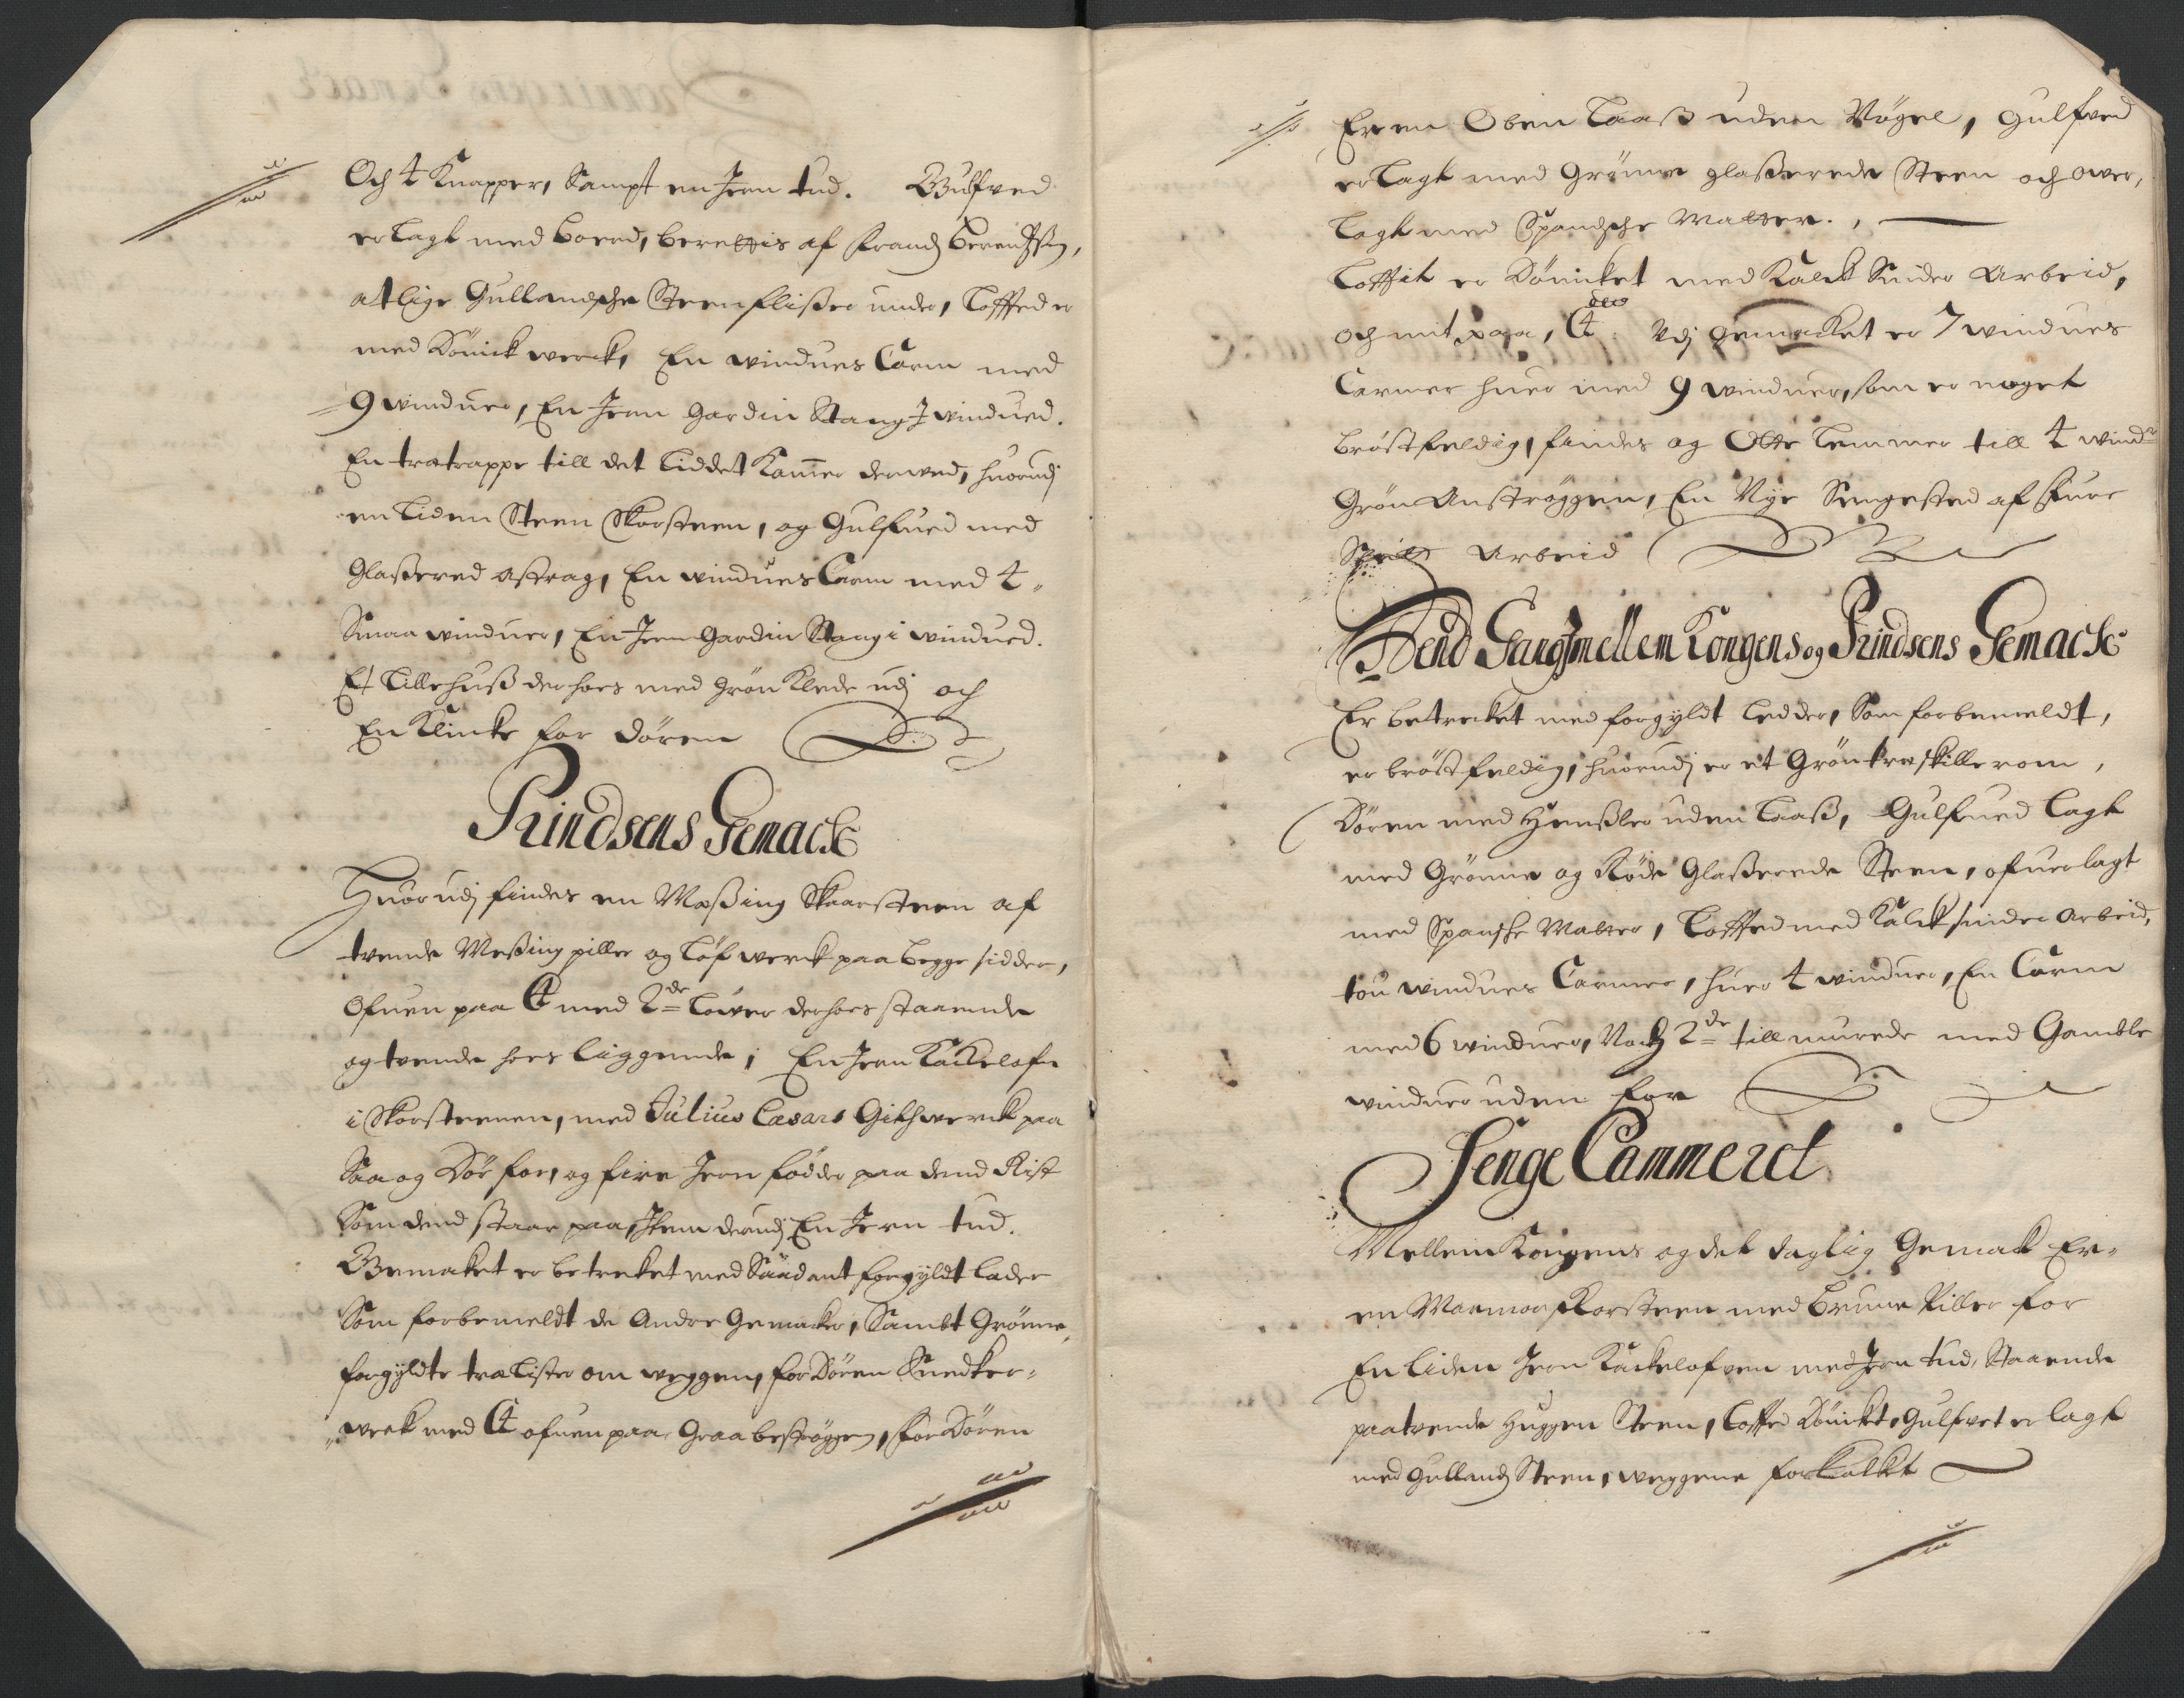 Och 4 Knapper, Sampt en Jern tud. Gulfved
er lagt med boerd, berettis af Frandz
at lige Gullandsche Steenflißer under, Loffted er
med Dönick werck, En windues Carm med
9 winduer, En Jern Gardin Stang J winduet.
En trætrappe till det liddet Kammer derved, huorudj
en liden Steen Skorsteen, og Gulfued med
Glaßered astrag, En windues Carm med 4
Smaa winduer, En Jern Gardin Stang i winduet.
Et Lillehuß der hoes med grön Klede udj och
En Klincke for dören
Prindsens Gemack
Huorudj findes en Meßing Skaarsteen af
tvende Meßing piller og Löfwerck paa begge sidder,
Ofuen paa C4 med 2de Löwer derhoes staaende
og tvende hoes liggende, En Jern Kackelofn
i Skorsteenen, med Julius Cæsars Githwerck paa
Saa og Dör for, og fire Jern födder paa dend Rist
Som dend staar paa, Item derudj En Jern tud.
Gemaket er betreket med Saadant forgyldt lader
Som forbemeldt de Andre Gemacker, Sambt Grönne
forgyldte træ Lister om weggen, for Dören Snedker-
werk med C4 ofuen paa Graa beströggen, for Dören
Er en Oben Laaß uden Nögel, Gulfved
er lagt med Grönne glaßerede Steen och ower,
lagt med Spandsche Matter.
Lofftit er Dönicket med Kalck Snider Arbeid,
och mit paa, C4. Udj gemacket er 7 windues
Carmer huer med 9 winduer, som er noget
bröstfeldig, findes og Otte Lemmer till 4 wind:
Grön Anströggen, En Nye Sengested af Fure
Arbeid
Dend Gang Jmellem Kongens og Prindsens Gemack
Er betrecket med forgyldt Ledder, Som forbemeldt,
er bröstfeldig, huorudj er et Grönt træskillerom,
Dören med Henßler uden Laaß, Gulfued lagt
med Grönne og Röde Glaßerede Steen, ofuerlagt
med Spanske Matter, Loffted med Kalcksnider Arbeid,
tou windues Carmer, huer 4 winduer, En Carm
med 6 winduer, Noch 2de tillmurede med Gamble
winduer uden for
Senge Cammeret
Mellem Kongens og det daglig Gemack Er
en Marmor Skorsteen med brune Piller for
En liden Jern Kackelofuen med Jern tud, Staaende
paa tvende huggen Steen, Lofftet Dönicket, Gulfvet er lagt
med Gullandz Steen, weggene forkalket